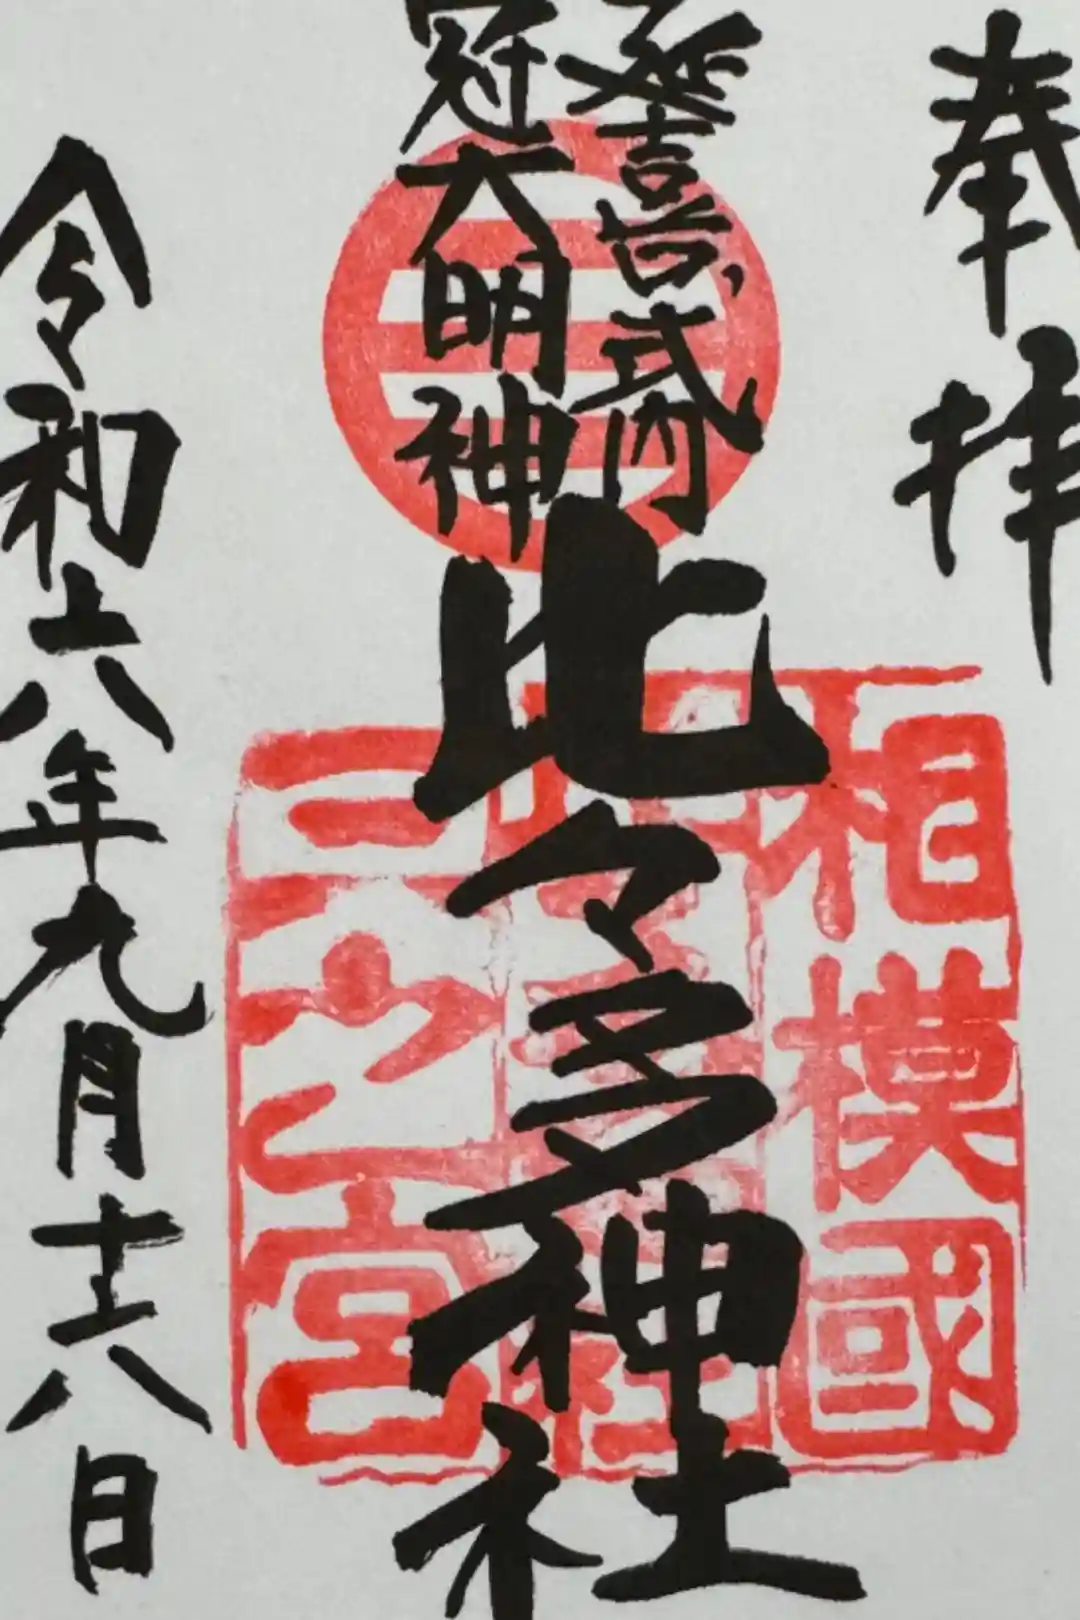 奉拝
延喜式内
冠大明神
比々多神社
相模國
三之宮
令和六年九月十六日